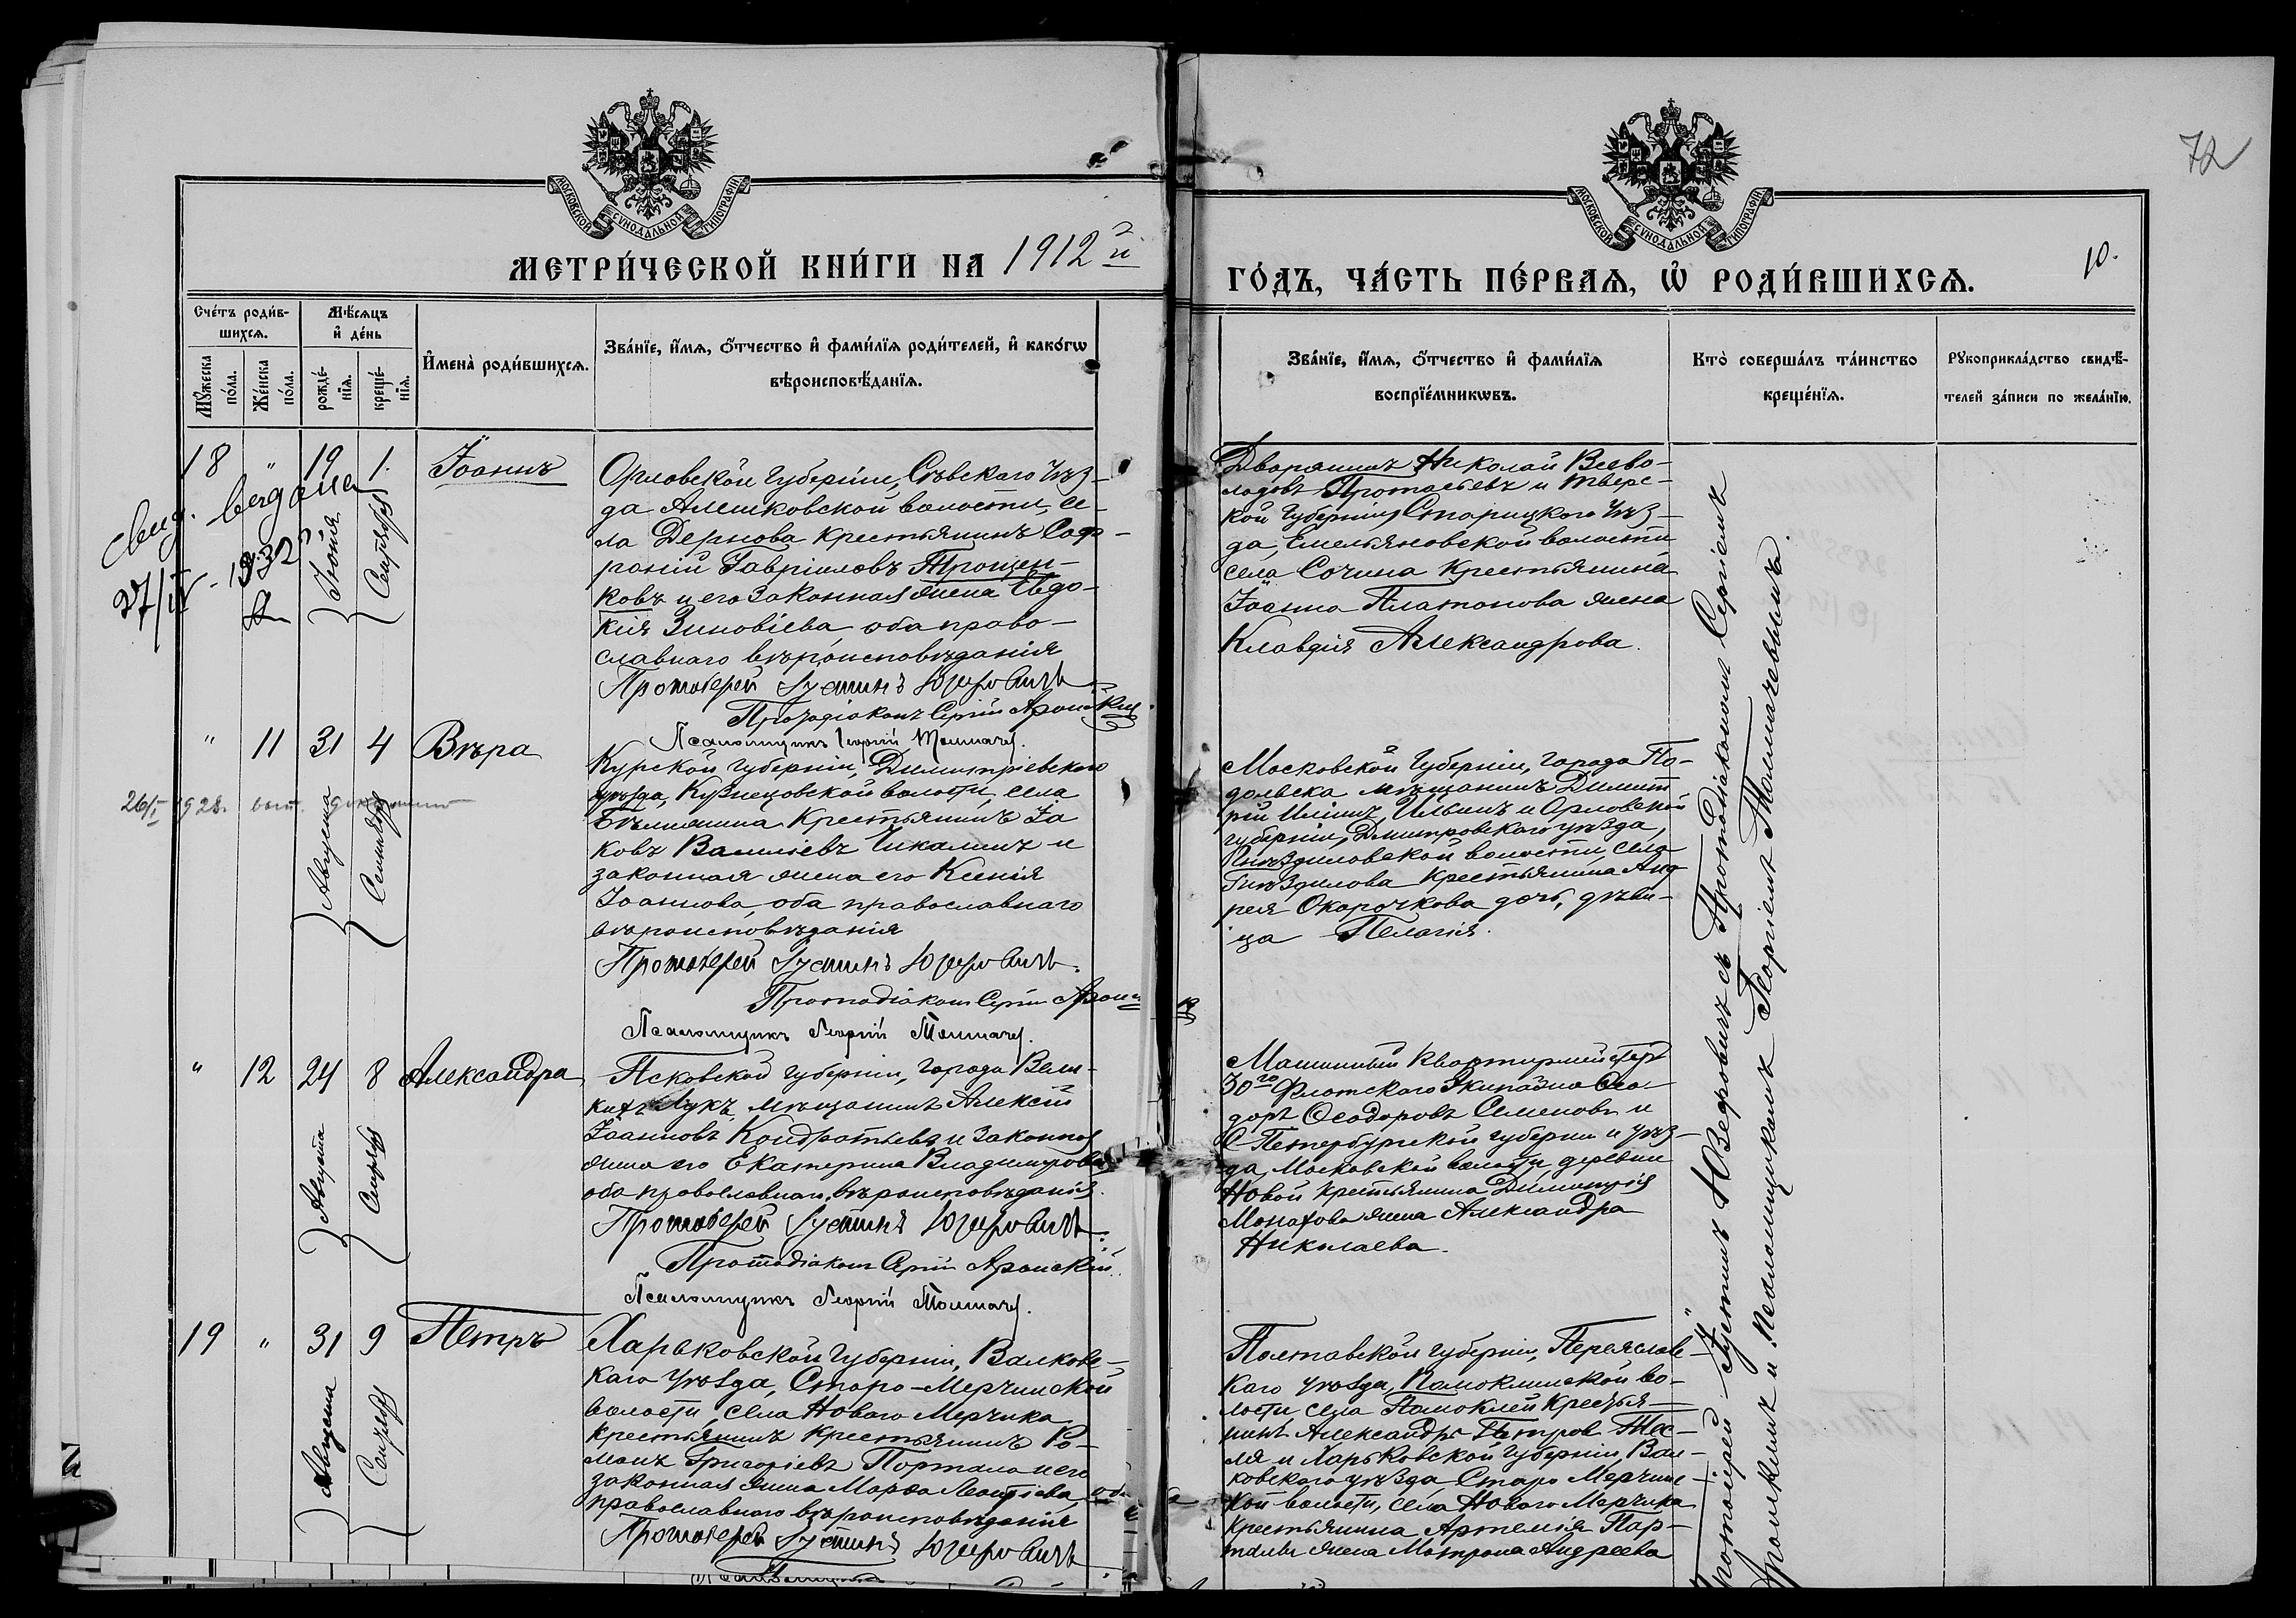 72
МОСКОВСКОЙ СѴНОДАЛЬНОЙ ТИПОГРАФІИ
МОСКОВСКОЙ СѴНОДАЛЬНОЙ ТИПОГРАФІИ
МЕТРИ́ЧЕСКОЙ КНИ́ГИ НА 1912й
ГО́ДЪ, ЧА́СТЬ ПЕ́РВАѦ, Ѽ РОДИ́ВШИХСѦ.
10.
Сче́тъ роди́в-
шихсѧ.
Мꙋ́жеска
по́ла.
Же́нска
по́ла.
Мѣ́сѧцъ
и҆ де́нь
рожде́-
нїѧ.
креще́-
нїѧ.
И҆мена̀ роди́вшихсѧ.
Зва́нїе, и҆́мѧ, ѻ҆́тчество и҆ фами́лїѧ роди́телей, и҆ како́гѡ
вѣроисповѣ́данїѧ.
Зва́нїе, и҆́мѧ, ѻ҆́тчество и҆ фами́лїѧ
воспрїе́мникѡвъ.
Кто̀ соверша́лъ та́инство
креще́нїѧ.
Рꙋкоприкла́дство свидѣ́-
телей за́писи по жела́нїю.
18 " 19 1. Іоаннъ
Іюня
Сентября
свид. выдано
27/IV - 1932
Орловской губерніи, Сѣвскаго Уѣз-
да Алешковской волости, се-
ла Дернова крестьянинъ Соф-
роній Гавріиловъ Трощен-
ковъ и его законная жена Евдо-
кія Зиновіева, оба право-
славнаго вѣроисповѣданія
Протоіерей Іустинъ Юзефовичъ.
Протодіаконъ Сергій Аронскій
Псаломщикъ Георгій Толмаче
Дворянинъ Николай Всево-
лодовъ Протасьевъ и Тверс-
кой губерніи, Старицкого Уѣз-
да, Емельяновской волости
села Сочина крестьянина
Іоанна Платонова жена
Клавдія Александрова.
" 11 31 4 Вѣра
Августа
Сентября
26/I 1928. выд.
Курской губерніи, Димитріевскаго
уѣзда, Кузнецовской волости, села
крестьянинъ Іа
ковъ Васильевъ Чикалинъ и
законная жена его Ксенія
Іоаннова, оба православнаго
вѣроисповѣданія
Протоіерей Іустинъ Юзефовичъ.
Протодіаконъ Сергій Аронскій
Псаломщикъ Георгій Толмаче
Московской губерніи, города По-
дольска мѣщанинъ Димит
рій Ильинъ и Орловской
губерніи, Дмитровскаго уѣзда,
Гнѣздиловской волости, села
Гнѣздилова крестьянина Анд
рея Окорочкова дочь, дѣви-
ца Пелагія.
" 12 24 8 Александра
Августа
Сентября
Псковской губерніи, города Вели-
кихъ Лукъ, мѣщанинъ Алексій
Іоанновъ Кондратьевъ и законная
жена его Екатерина Владимірова
оба православнаго вѣроисповѣданія.
Протоіерей Іустинъ Юзефовичъ.
Протодіаконъ Сергій Аронскій.
Псаломщикъ Георгій Толмаче
Машинный Квартирмистръ
30го Флотскаго Экипажа Ѳео-
доръ Ѳеодоровъ Семеновъ и
С Петербургской губерніи и уѣз-
да, Московской волости, деревни
Новой крестьянина Димитрія
Монахова жена Александра
Николаева.
19 " 31 9 Петръ
Августа
Сентября
Харьковской губерніи, Валковс-
каго уѣзда, Старо-Мерчинской
волости, села Новаго Мерчика
крестьянинъ крестьянинъ Ро-
манъ Григорьевъ Портала и его
законная жена Марѳа Леонтіева, оба
православнаго вѣроисповѣданія
Протоіерей Іустинъ Юзефовичъ
Полтавской губерніи, Переяславс-
каго уѣзда, Помоклинской во-
лости, села Помоклей крестья-
нинъ Александръ Петровъ Тес-
ля и Харьковской губерніи, Вал-
ковскаго уѣзда Старо Мерчинс-
кой волости, села Новаго Мерчика
крестьянина Артемія Пор-
талы жена Матрона Андреева
Протоіерей Іустинъ Юзефовичъ съ Протодіакономъ Сергіемъ
Аронскимъ и псаломщикомъ Георгіемъ Толмачевымъ.